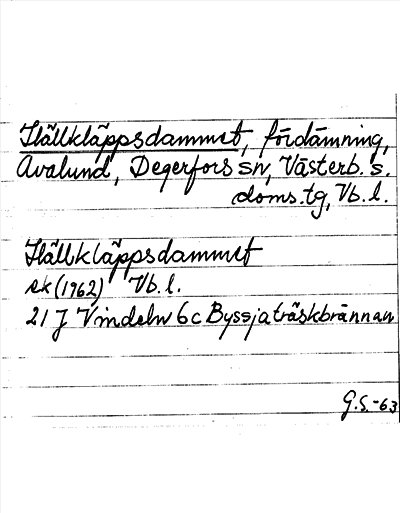 Hällkläppsdammet, fördämning,
Avalund, Degerfors sn, Västerb. s.
doms. tg, Vb. l.
Hällkläppsdammet
ek (1962) Vb. l.
21 J Vindeln 6c Byssjaträskbrännan
G.S.-63